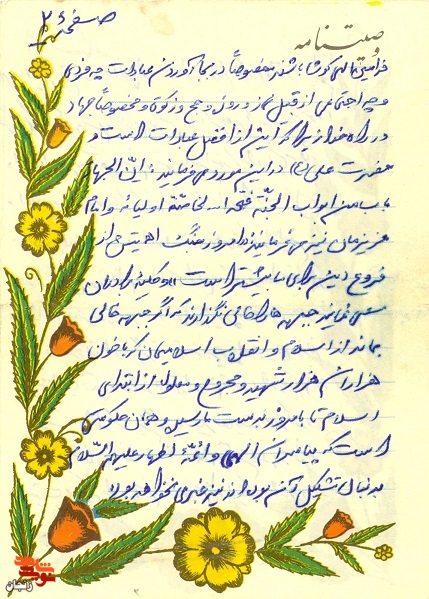 صفحه ۲۶
وصیتنامه
فرامین الهی کوشا باشند مخصوصاً در بجا آوردن عبادات چه فردی
و چه اجتماعی از قبیل نماز و روزه و حج و زکوة و مخصوصاً جهاد
در راه خدا زیرا که این از افضل عبادات است و
حضرت علی (ع) در این مورد می فرمایند فَانَّ الجهاد
باب من ابواب الجنّة فتحه الله لخاصّة اولیائه و امام
عزیزمان نیز می فرمایند در امروز جنگ اهمیتش از
فروع دین برای ما بیشتر است و کلیه برادران
سعی نمایند جبهه ها را خالی نگذارند که اگر جبهه خالی
بماند از اسلام و انقلاب اسلامیمان که با خون
هزاران هزار شهید و مجروح و معلول از ابتدای
اسلام تا بامروز بدست ما رسیده و همان حکومتی
است که پیامبران الهی و ائمهٔ اطهار علیهم السّلام
بدنبال تشکیل آن بوده اند نیز خبری نخواهد بود
زنجان